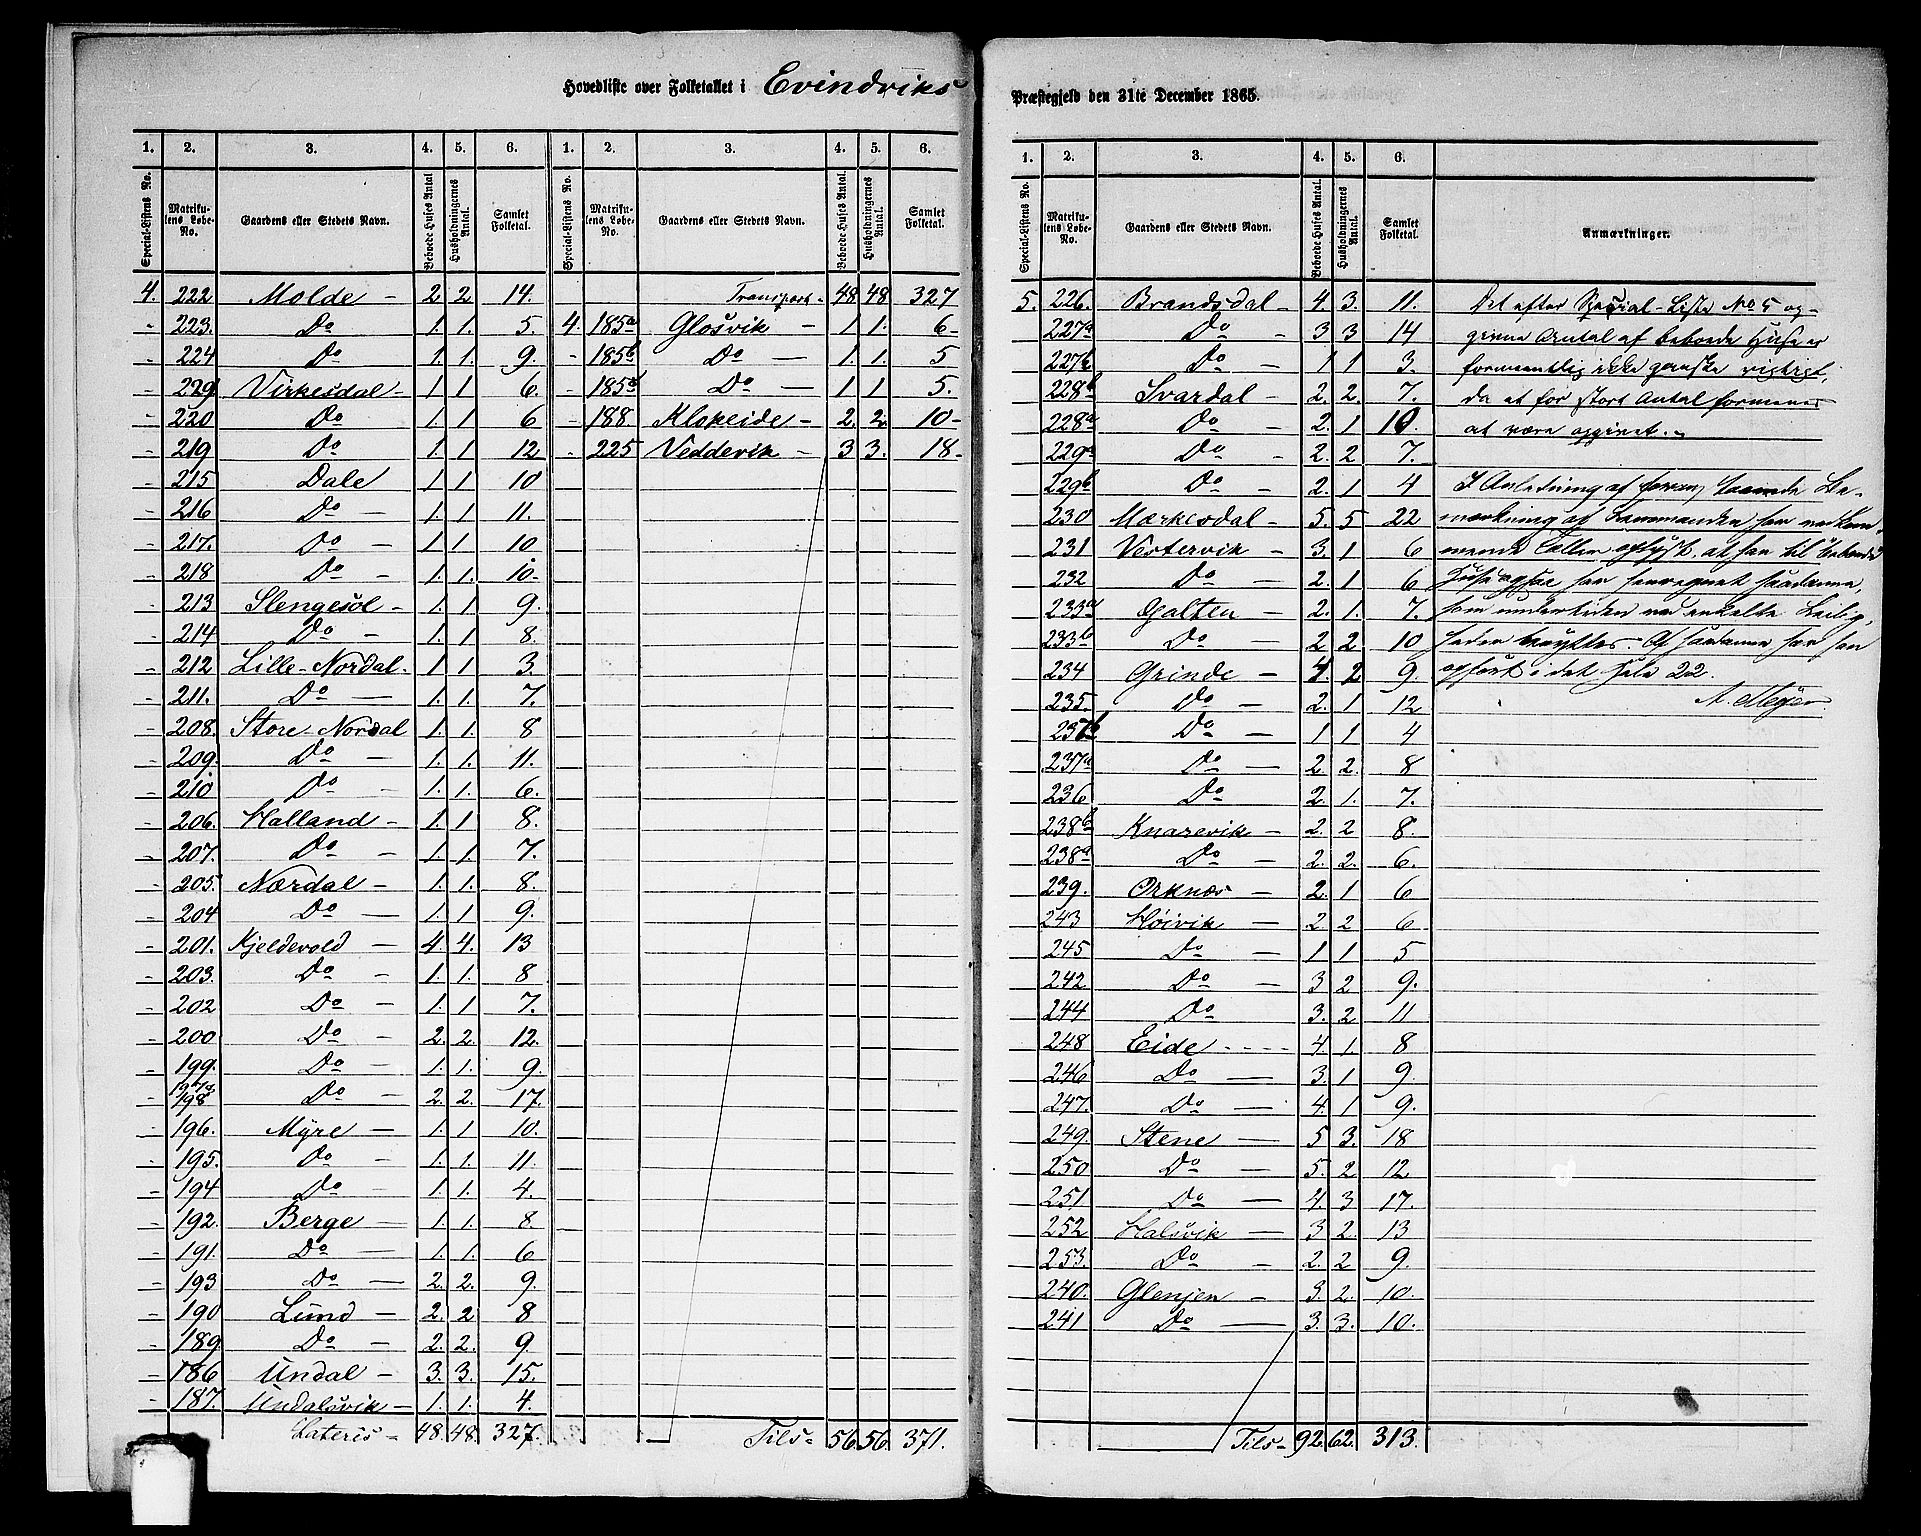 Hovedliste over Folketallet i Evindviks
Præstegjeld den 31te December 1865.
1. 2. 3. 4. 5. 6. 1. 2. 3. 4. 5. 6.
Special-Listens No. Matrikulens Løbe-No. Gaardens eller Stedets Navn. Beboede Huses Antal Husholdningernes Antal. Samlet Folketal. Special-Listens No. Matrikulens Løbe-No. Gaardens eller Stedets Navn. Beboede Huses Antal. Husholdningernes Antal. Samlet Folketal.
4. 222 Molde - 2 2 14. Transport - 48 48 327
- 223. Do 1. 1. 5. 4. 185a Glosvik - 1 1. 6-
- 224 Do - 1. 1. 9. - 185b Do - 1. 1. 5
- 221 Virkesdal - 1 1 6. - 185 Do - 1 1 5.
- 220 Do 1 1 6 - 188 Klokeide - 2. 2. 10-
- 219 Do 1 1 12 - 225 Veddevik - 3 3. 18-
- 215 Dale 1 1 10
- 216 Do - 1. 1. 11.
- 217. Do - 1 1 10
- 218 Do - 1. 1. 10-
- 213 Slengesol - 1 1 9.
- 214 Do - 1 1 8.
- 212 Lille-Nordal - 1 1 3.
- 211. Do - 1. 1. 7.
- 208. Store-Nordal 1. 1. 8
- 209. Do - 1. 1. 11.
- 210 Do - 1. 1. 6.
- 206. Halland - 1. 1 8.
- 207. Do - 1. 1. 7.
- 205 Nærdal - 1. 1. 8.
- 204 Do - 1. 1 9.
- 201. Kjeldevold - 4. 4. 13
- 203. Do - 1. 1. 8
- 202 Do - 1. 1 7.
- 200 Do - 2. 2. 12.
- 199. Do - 1. 1. 9
- 197& 198 Do - 2. 2. 17.
- 196. Myre - 1. 1 10.
- 195. Do - 1. 1. 11.
- 194 Do - 1. 1. 4.
- 192. Berge - 1. 1. 8
- 191. Do - 1. 1. 6
- 193 Do - 2. 2. 9.
- 190 Lund - 2. 2 8
- 189 Do - 2. 2. 9.
- 186 Undal - 3. 3. 15.
- 187. Undalsvik - 1. 1. 4.
Lateris - 48. 48. 327. Tils- 56. 56. 371.
1. 2. 3. 4. 5. 6.
Special-Listens No. Matrikulens Løbe-No. Gaardens eller Stedets Navn. Beboede Huses Antal. Husholdningernes Antal. Samlet Folketal. Anmærkninger.
5. 226. Brandsdal - 4. 3. 11. Det efter Special-Liste No 5 op-
227a Do - 3 3 14 givne Antal af beboede Huse er
227b Do - 1 1 3. formentlig ikke ganske rigtigt,
228b Svardal - 2. 2. 7. da et for stort Antal formenes
228a Do - 2. 1 10. at være opgivet.
229a Do - 2. 2 7.
229b Do - 2. 1 4 I Anledning af foran staaende Be-
230 Mærkesdal - 5. 5 22 mærkning af Lensmanden har vedkom-
231 Vestervik - 3. 1 6 mende Tæller oplyst, at han til beboede
232 Do - 2. 1 6 Huse har saadanne,
233a Galten - 2. 1. 7. som undertiden ved enkelte Leilig-
233b Do - 2 2 10 heder benyttes. Af saadanne har han
234 Grinde - 4 2 9. opført i det hele 22.
235. Do - 2. 1 12
237b Do - 1 1 4
237a Do - 2 2. 8
236 Do 2 1. 7.
238b Knarevik - 2. 2 8.
238a Do - 2 2. 6.
239. Orknæs - 2. 1 6
243 Høivik - 2 2 6
245 Do - 1 1 5
242 Do - 3 2 9.
244 Do 3. 2 11
248 Eide - - - - 4. 1. 8
246 Do - 3. 1 9.
247. Do - 4. 1 9.
249. Stene - 5 3. 18
250 Do - 5. 2 12
251 Do - 4. 3 17.
252 Halsvik - 3 2. 13
253. Do - 2. 2 9.
240. Glenjen - 3. 2. 10.
241 Do - 3. 3. 10.
Tils- 92. 62. 313.